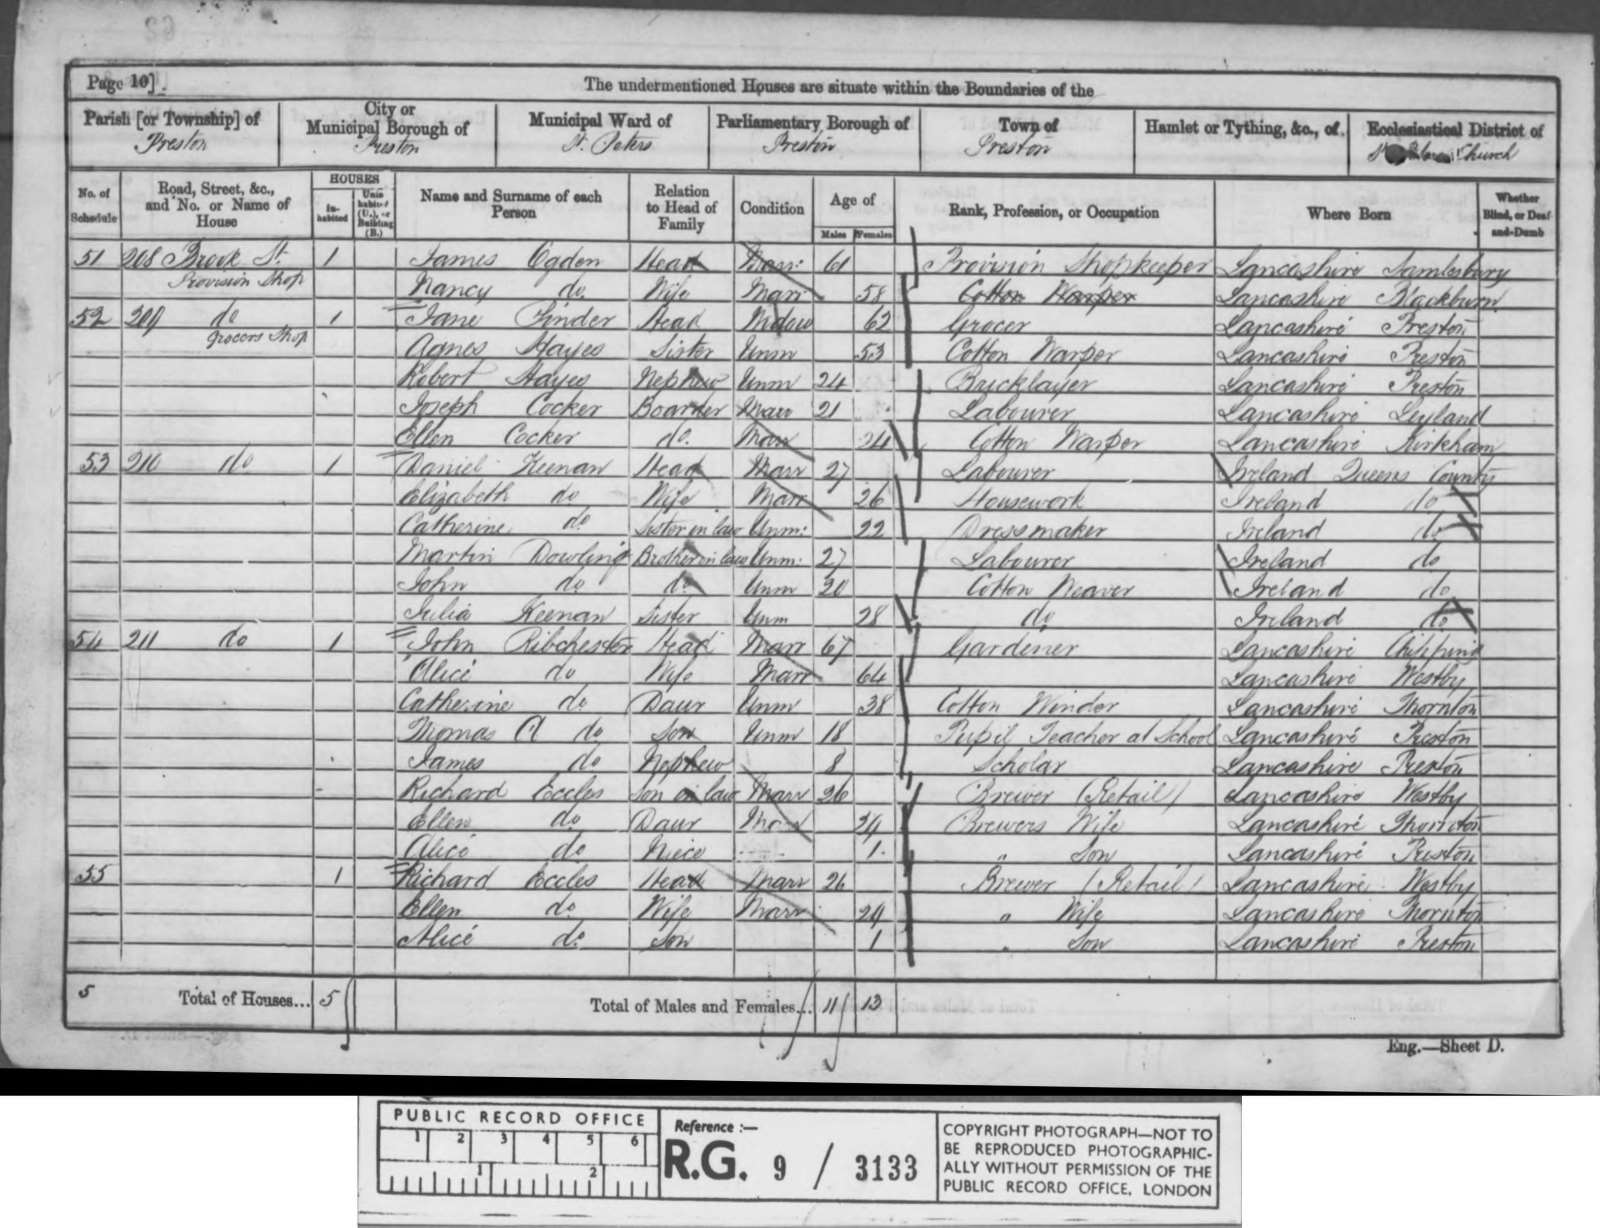 Page 10].
The undermentioned Houses are situate within the Boundaries of the
Parish [or Township] of
Preston
City or
Municipal Borough of
Preston
Municipal Ward of
St. Peters
Parliamentary Borough of
Preston
Town of
Preston
Hamlet or Tything, &c., of
Ecclesiastical District of
Church
No. of Schedule
Road, Street, &c., and No. or Name of House
HOUSES
In-habited
Unin-habited (U.), or Building (B.)
Name and Surname of each Person
Relation to Head of Family
Condition
Age of
Males
Females
Rank, Profession, or Occupation
Where Born
Whether Blind, or Deaf-and-Dumb
51 208 Brook St. 1 James Ogden Head Marr. 61 Provision Shopkeeper Lancashire Samlesbury
Provision Shop Nancy do Wife Marr 58 Cotton Warper Lancashire Blackburn
52 209 do 1 Jane Pinder Head Widow 62 Grocer Lancashire Preston
Grocers Shop Agnes Hayes Sister Unm 53 Cotton Warper Lancashire Preston
Robert Hayes Nephew Unm 24 Bricklayer Lancashire Preston
Joseph Cocker Boarder Marr 21 Labourer Lancashire Leyland
Ellen Cocker do. Marr 24 Cotton Warper Lancashire Kirkham
53 210 do 1 Daniel Keenan Head Marr 27 Labourer Ireland Queens County
Elizabeth do Wife Marr 26 Housework Ireland do
Catherine do Sister in law Unm: 22 Dressmaker Ireland do
Martin Dowling Brother in law Unm: 27 Labourer Ireland do
John do do Unm 20 Cotton Weaver Ireland do
Julia Keenan Sister Unm 28 do Ireland do
54 211 do 1 John Ribchester Head Marr 67 Gardener Lancashire Chipping
Alice do Wife Marr 64 Lancashire Westby
Catherine do Daur Unm 38 Cotton Winder Lancashire Thornton
Thomas C do Son Unm 18 Pupil Teacher at School Lancashire Preston
James do Nephew 8 Scholar Lancashire Preston
Richard Eccles Son in law Marr 26 Brewer (Retail) Lancashire Westby
Ellen do Daur Marr 29 Brewers Wife Lancashire Thornton
Alice do Niece 1 " Son Lancashire Preston
55 1 Richard Eccles Head Marr 26 Brewer (Retail) Lancashire Westby
Ellen do Wife Marr 29 " Wife Lancashire Thornton
Alice do Son 1 " Son Lancashire Preston
5 Total of Houses... 5 Total of Males and Females... 11 13
Eng.—Sheet D.
PUBLIC RECORD OFFICE
1 2 3 4 5 6
1 2
Reference :—
R.G. 9 / 3133
COPYRIGHT PHOTOGRAPH—NOT TO
BE REPRODUCED PHOTOGRAPHIC-
ALLY WITHOUT PERMISSION OF THE
PUBLIC RECORD OFFICE, LONDON